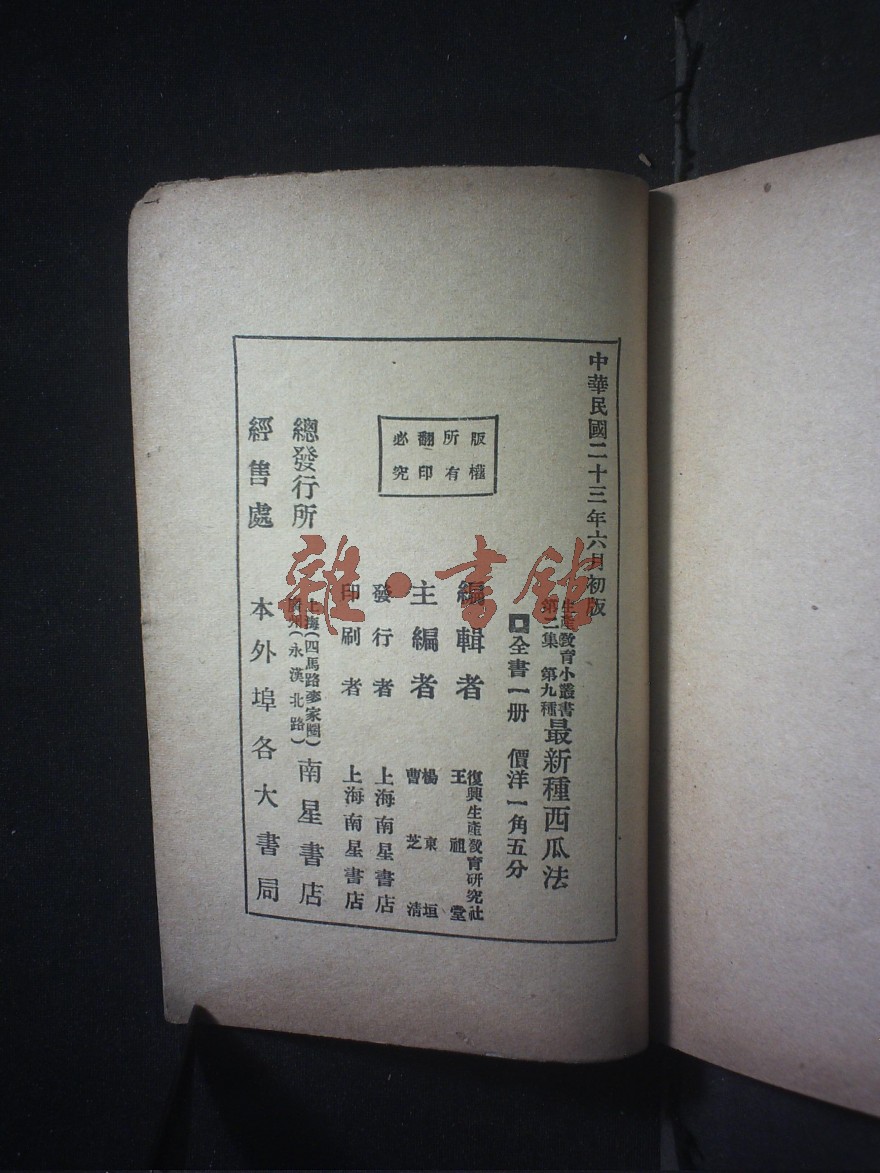 中華民國二十三年六月初版
生產敎育小叢書
第二集 第九種
最新種西瓜法
全書一册 價洋一角五分
編輯者 復興生產敎育研究社
王祖堂
主編者 楊東垣
曹芝清
發行者 上海南星書店
印刷者 上海南星書店
版權所有翻印必究
總發行所 上海(四馬路麥家圈)
廣州(永漢北路)
南星書店
經售處 本外埠各大書局
雜·書館